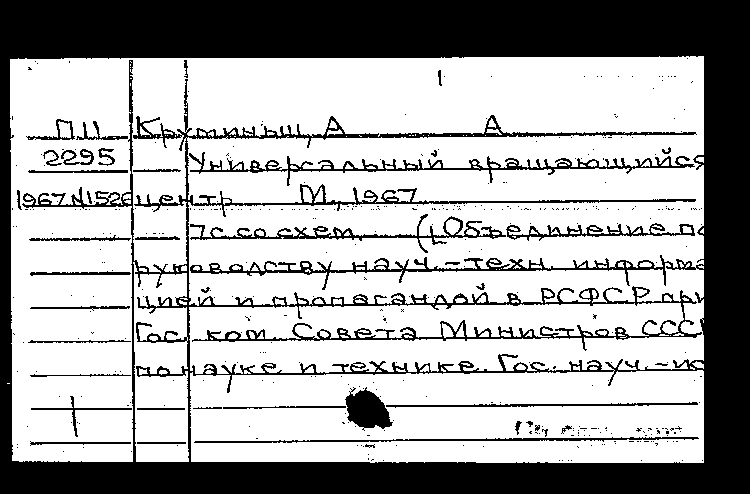 П11 Крутиньш, А А
2295 Универсальный вращающийся
1967 N1526 центр М., 1967
7с. со схем. ([Объединение по
руководству науч.-техн. информа
цией и пропагандой в РСФСР при
Гос. ком. Совета Министров СССР
по науке и технике. Гос. науч.-ис